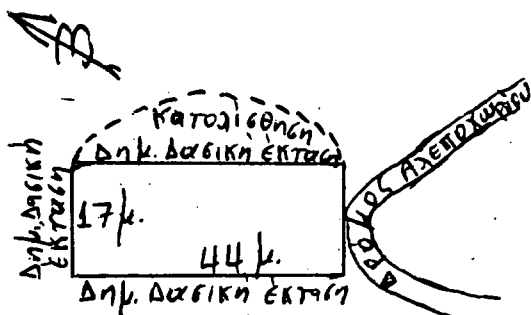 Β
κατολισθηση
Δημ. Δασικη έκταση
Δημ. Δασικη
έκταση
17 μ.
44 μ.
Δημ. Δασικη έκταση
Δρομος Αλεποχωριου